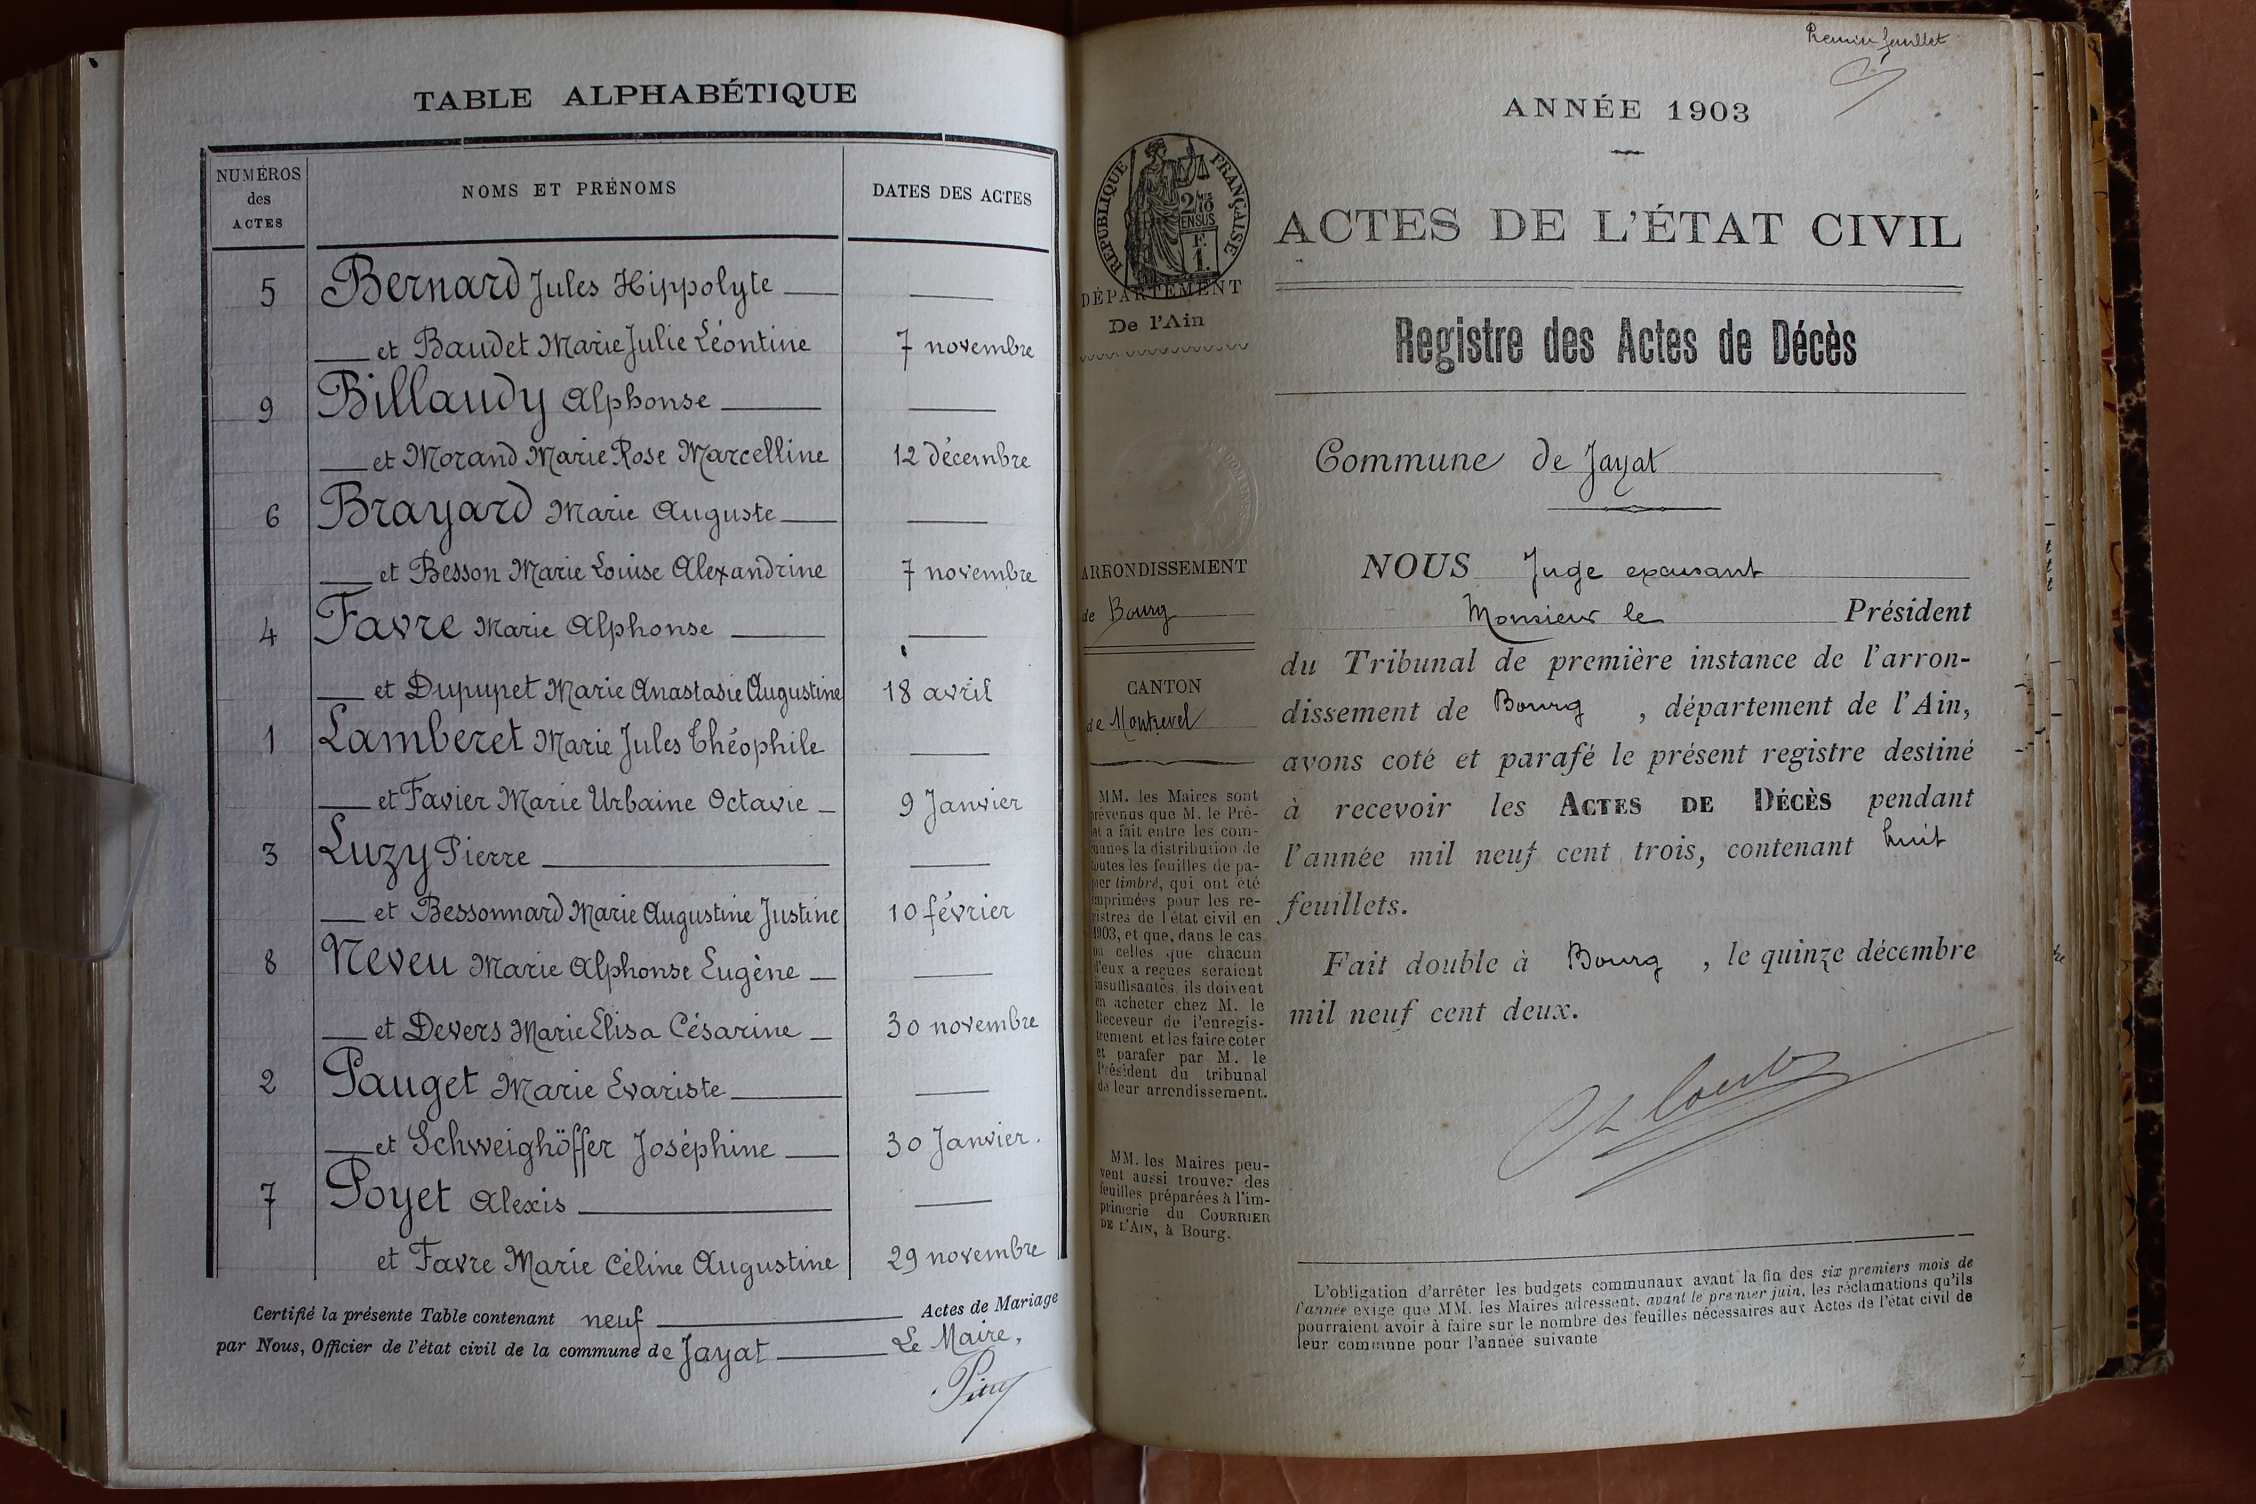 TABLE ALPHABÉTIQUE
NUMÉROS des ACTES | NOMS ET PRÉNOMS | DATES DES ACTES
5 Bernard Jules Hippolyte
et Baudet Marie Julie Léontine 7 novembre
9 Billaudy Alphonse
et Morand Marie Rose Marcelline 12 décembre
6 Brayard Marie Auguste
et Besson Marie Louise Alexandrine 7 novembre
4 Favre Marie Alphonse
et Dupupet Marie Anastasie Augustine 18 avril
1 Lamberet Marie Jules Théophile
et Favier Marie Urbaine Octavie 9 Janvier
3 Luzy Pierre
et Bessonnard Marie Augustine Justine 10 février
8 Neveu Marie Alphonse Eugène
et Devers Marie Elisa Césarine 30 novembre
2 Pauget Marie Evariste
et Schweighöffer Joséphine 30 Janvier.
7 Poyet Alexis
et Favre Marie Céline Augustine 29 novembre
Certifié la présente Table contenant neuf Actes de Mariage
par Nous, Officier de l'état civil de la commune de Jayat Le Maire,
Premier feuillet
ANNÉE 1903
RÉPUBLIQUE FRANÇAISE
2/10 EN SUS
F. 1.
ACTES DE L'ÉTAT CIVIL
DÉPARTEMENT
De l'Ain
Registre des Actes de Décès
Commune de Jayat
ARRONDISSEMENT
de Bourg
CANTON
de Montrevel
NOUS Juge excusant
Monsieur le Président
du Tribunal de première instance de l'arron-
dissement de Bourg, département de l'Ain,
avons coté et parafé le présent registre destiné
à recevoir les ACTES DE DÉCÈS pendant
l'année mil neuf cent trois, contenant huit
feuillets.
Fait double à Bourg, le quinze décembre
mil neuf cent deux.
MM. les Maires sont
prévenus que M. le Pré-
et a fait entre les com-
munes la distribution de
toutes les feuilles de pa-
pier timbré, qui ont été
imprimées pour les re-
gistres de l'état civil en
1903, et que, dans le cas
où celles que chacun
d'eux a reçues seraient
insuffisantes, ils doivent
en acheter chez M. le
Receveur de l'enregis-
trement et les faire coter
et parafer par M. le
Président du tribunal
de leur arrondissement.
MM. les Maires peu-
vent aussi trouver des
feuilles préparées à l'im-
primerie du COURRIER
DE L'AIN, à Bourg.
L'obligation d'arrêter les budgets communaux avant la fin des six premiers mois de
l'année exige que MM. les Maires adressent, avant le premier juin, les réclamations qu'ils
pourraient avoir à faire sur le nombre des feuilles nécessaires aux Actes de l'état civil de
leur commune pour l'année suivante